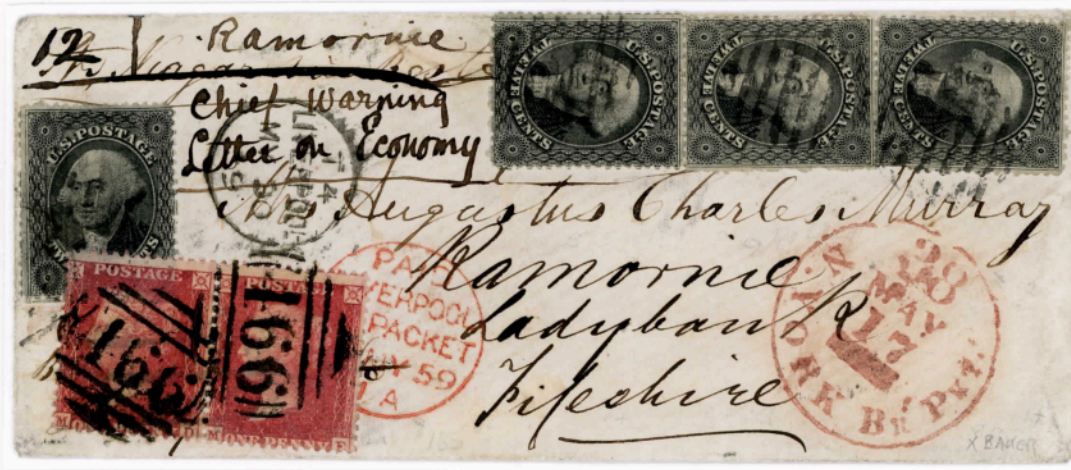 12 Ramornie
Chief Warning
Letter on Economy
U.S. POSTAGE
TWELVE CENTS
U.S. POSTAGE
TWELVE CENTS
U.S. POSTAGE
TWELVE CENTS
U.S. POSTAGE
Augustus Charles Murray
Ramornie
Ladybank
Fifeshire
POSTAGE
POSTAGE
ONE PENNY
466
166
PAID
LIVERPOOL
PACKET
59
A
N. YORK Br. Pkt.
38
MAY
17
X BAKER